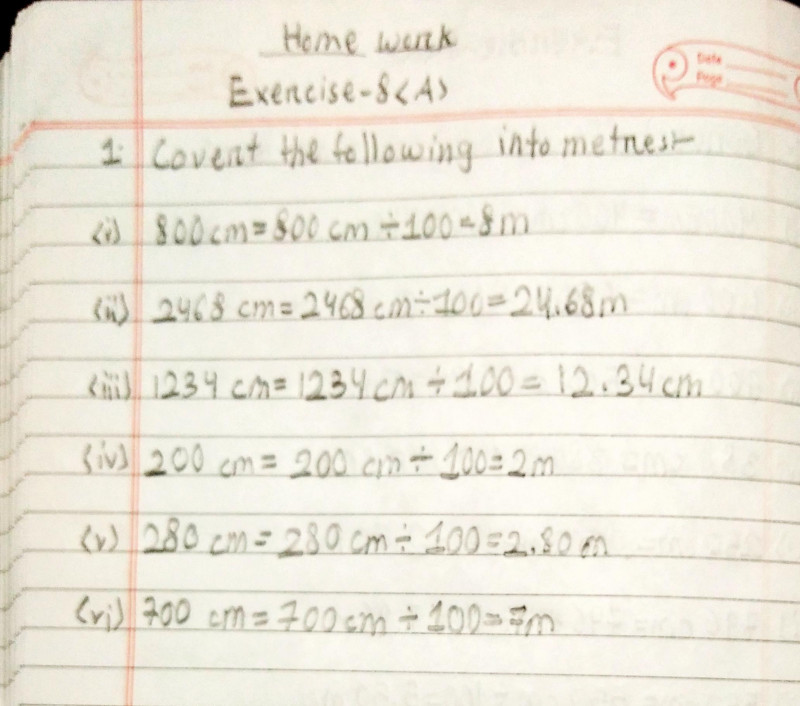 Home work
Exercise-8(A)
Date
Page
1. Covert the following into metres:-
(i) 800 cm = 800 cm ÷ 100 = 8m
(ii) 2468 cm = 2468 cm ÷ 100 = 24.68m
(iii) 1234 cm = 1234 cm ÷ 100 = 12.34 cm
(iv) 200 cm = 200 cm ÷ 100 = 2m
(v) 280 cm = 280 cm ÷ 100 = 2.80 m
(vi) 700 cm = 700 cm ÷ 100 = 7m